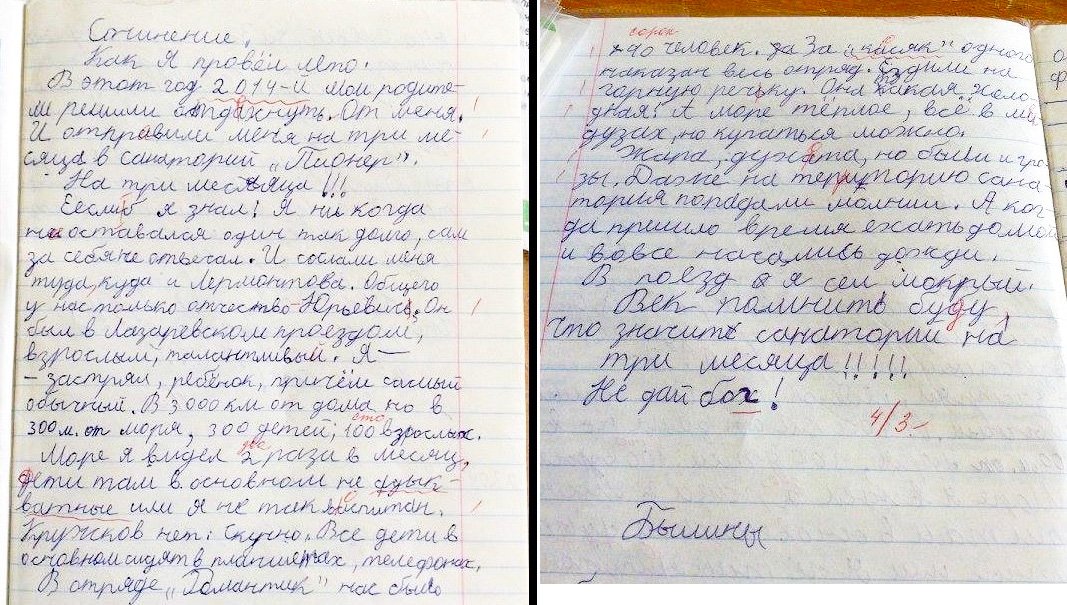 Сочинение.
Как Я провёл лето.
В этот год 2014-й мои родите-
ли решили отдахнуть. От меня.
И отправили меня на три ме-
сяца в санаторий „Пионер".
На три месяца!!!
Еесли б я знал! Я ни когда
на оставался один так долго, сам
за себя не отвечал. И сослали меня
туда, куда и Лермонтова. Общего
у нас только отчество – Юрьевич. Он
был в Лазаревском проездом,
взрослый, талантливый. Я –
– застрял, ребёнок, причём самый
обычный. В 3000 км от дома но в
300 м. от моря, 300 детей, сто
100 взрослых.
два
Море я видел 2 раза в месяц,
дети там в основном не адык-
ватные или я не так воспитан.
Кружков нет. Скучно. Все дети в
основном сидят в планшетах, телефонах.
В отряде „Романтик" нас было
сорок
40 человек. За „касяк" одного
наказан весь отряд. Ездили на
горную речьку. Она какая холо-
дная! А море тёплое, всё в ме-
дузах, но купаться можно.
Жара, духата, но были и гро-
зы. Даже на территорию сана-
тория попадали молнии. А ког-
да пришло время ехать домой
и вовсе начались дожди.
В поезд я сел мокрый.
Век помнить буду,
что значить санаторий на
три месяца !!!!!
Не дай бог!
4/3-
Былины